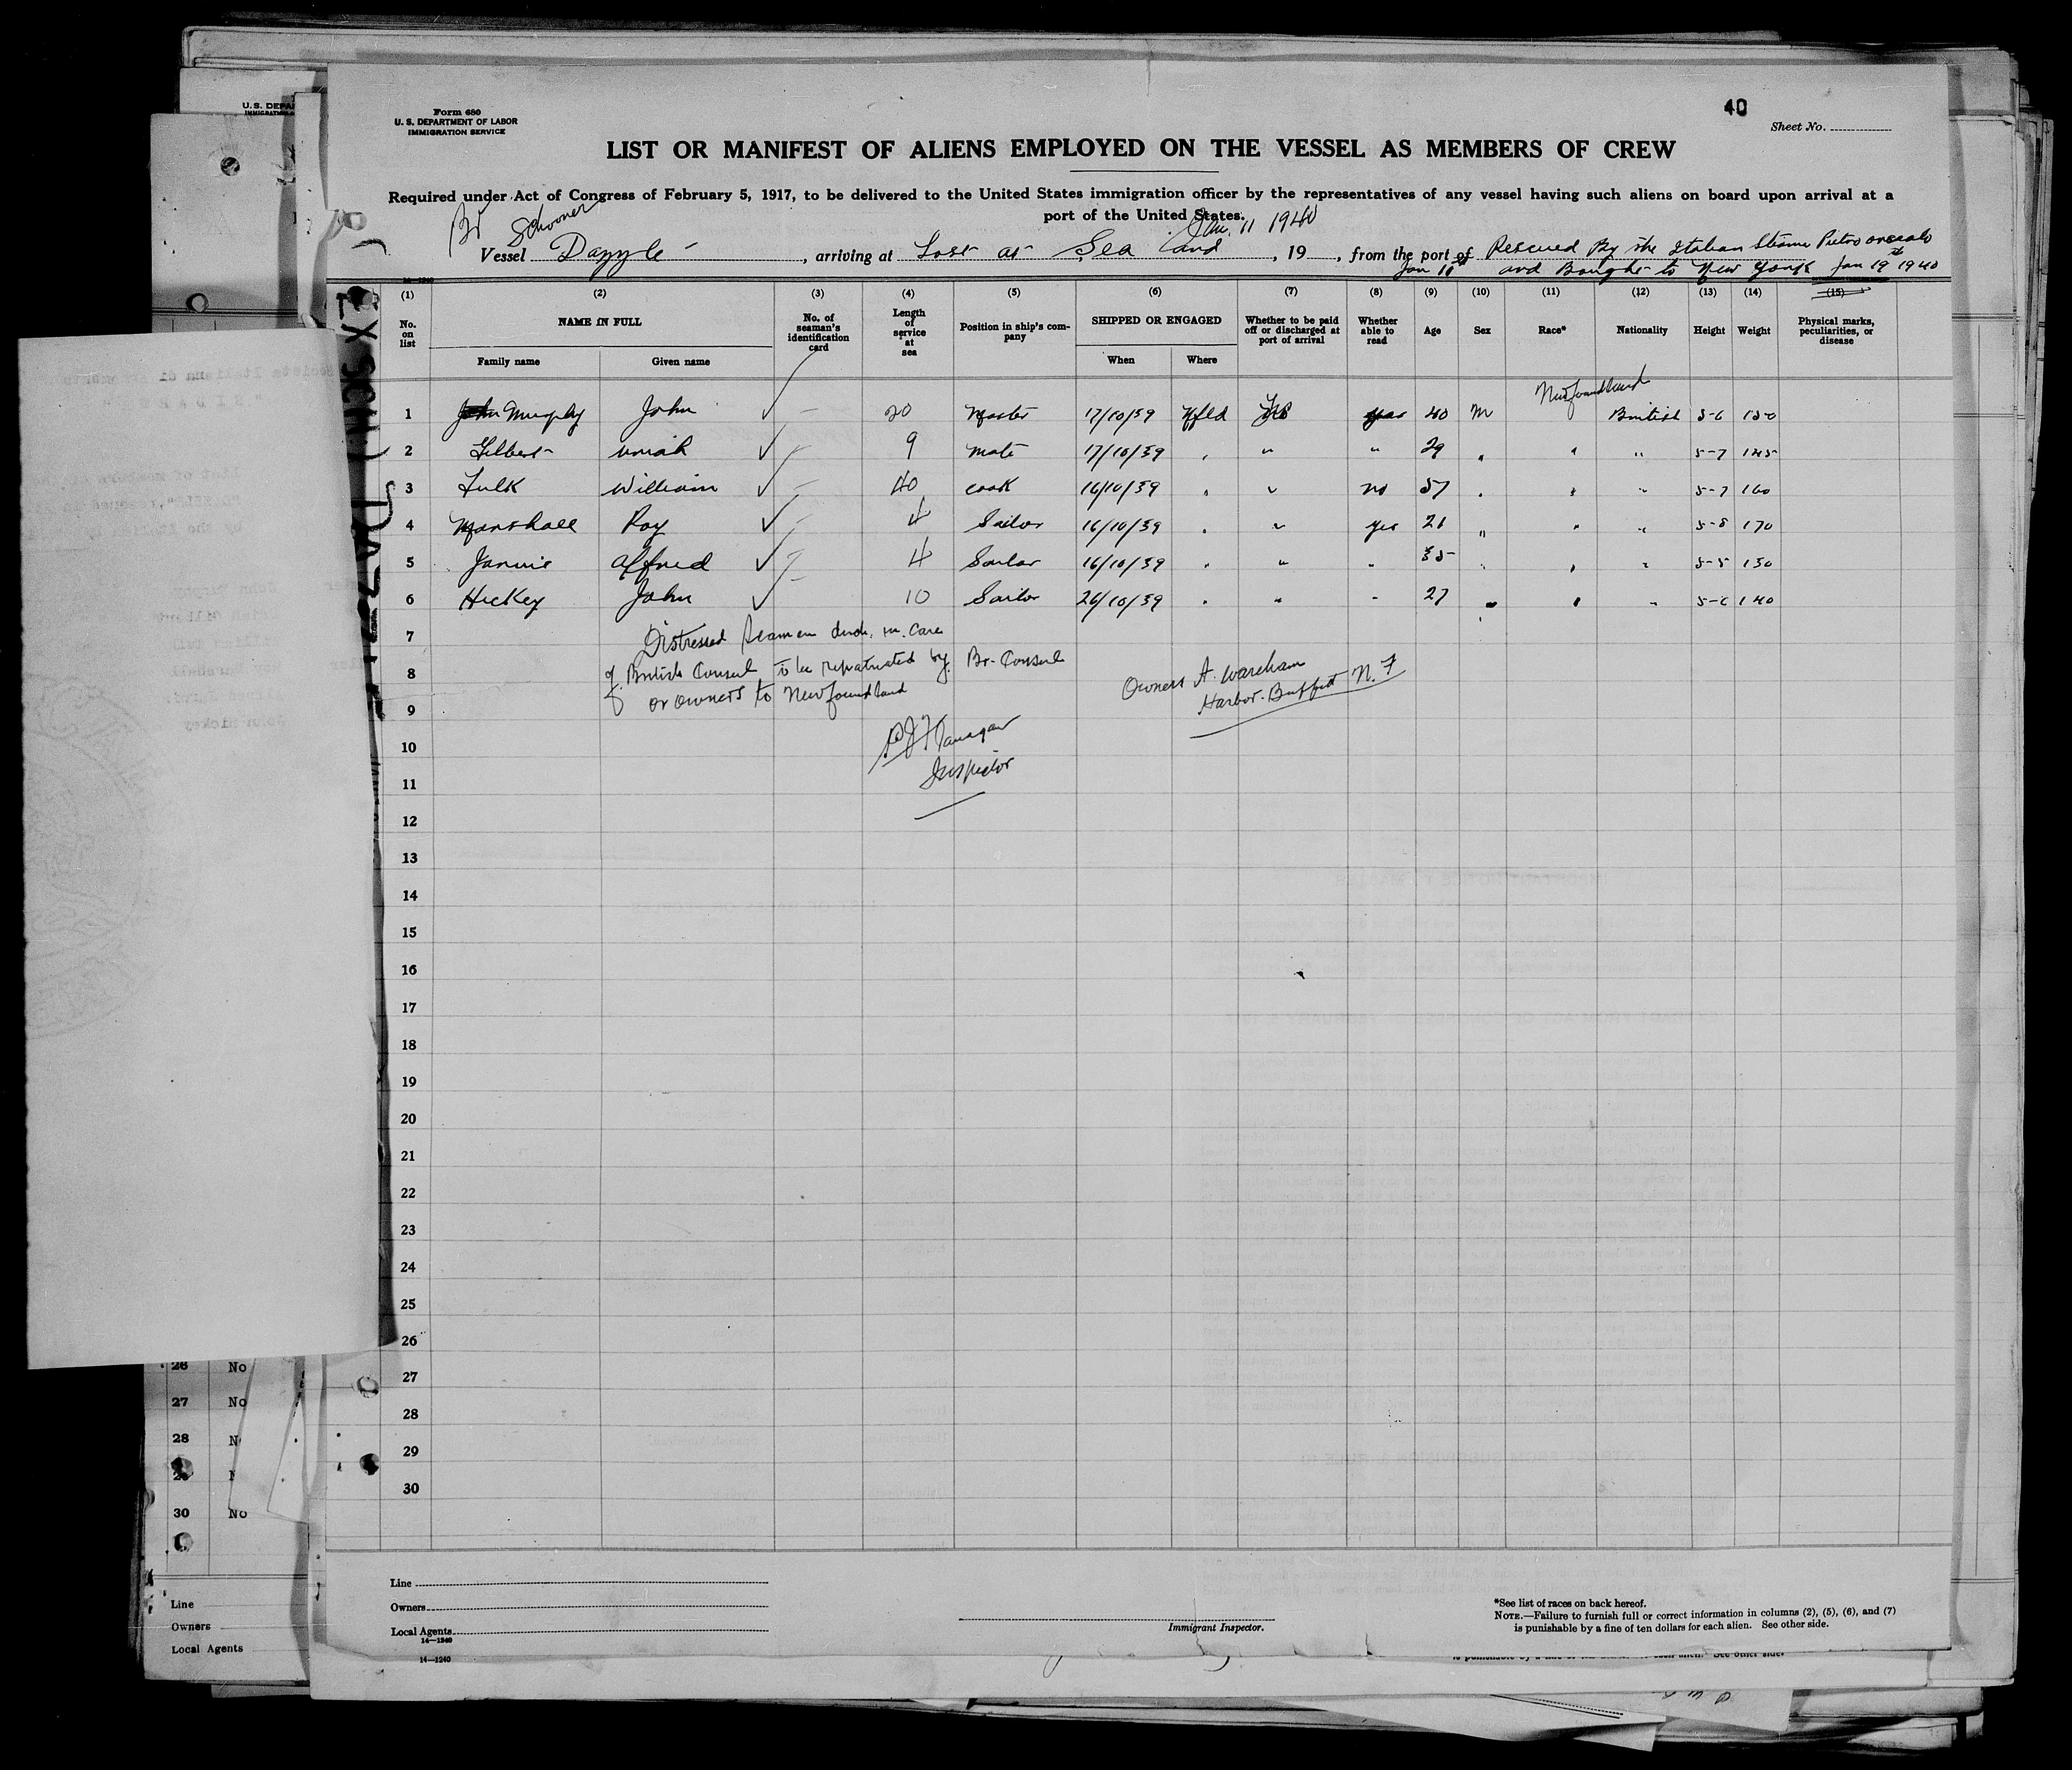 40
Form 680
U. S. DEPARTMENT OF LABOR
IMMIGRATION SERVICE
Sheet No.
LIST OR MANIFEST OF ALIENS EMPLOYED ON THE VESSEL AS MEMBERS OF CREW
Required under Act of Congress of February 5, 1917, to be delivered to the United States immigration officer by the representatives of any vessel having such aliens on board upon arrival at a
port of the United States.
Br Schooner Jan. 11 1940
Vessel Dazzle, arriving at Lost at Sea and, 19, from the port of Rescued By the Italian Steame Pietro
Jan and Bought to New York Jan 19th 1940
(1) (2) (3) (4) (5) (6) (7) (8) (9) (10) (11) (12) (13) (14) (15)
No. on list NAME IN FULL Family name Given name No. of seaman's identification card Length of service at sea Position in ship's company SHIPPED OR ENGAGED When Where Whether to be paid off or discharged at port of arrival Whether able to read Age Sex Race* Nationality Height Weight Physical marks, peculiarities, or disease
1 Murphy John ✓ — 20 Master 17/10/39 Nfld yes 40 M Newfoundland British 5-6 150
2 Gilbert Uriah ✓ 9 Mate 17/10/39 " " " 29 " " " 5-7 145
3 Fulk William ✓ 40 cook 16/10/39 " " no 57 " " " 5-7 160
4 Marshall Roy ✓ 4 Sailor 16/10/39 " " yes 21 " " " 5-8 170
5 Jarvis Alfred ✓ 4 Sailor 16/10/39 " " " 35 " " " 5-5 130
6 Hickey John ✓ 10 Sailor 26/10/39 " " " 27 " " " 5-6 140
7 Distressed Seamen disch. in care
8 of British Consul to be repatriated by Br. Consul
9 or owners to Newfoundland
Owners A. Wareham
Harbor Buffett N. F
10 Flanagan
11 Inspector
12
13
14
15
16
17
18
19
20
21
22
23
24
25
26
27
28
29
30
Line
Owners
Local Agents
14—1240
Immigrant Inspector.
*See list of races on back hereof.
NOTE.—Failure to furnish full or correct information in columns (2), (5), (6), and (7)
is punishable by a fine of ten dollars for each alien. See other side.
14—1240
EX SCH. DAZZLE
U. S. DEPA
26 No
27 No
28 N
30 No
Line
Owners
Local Agents